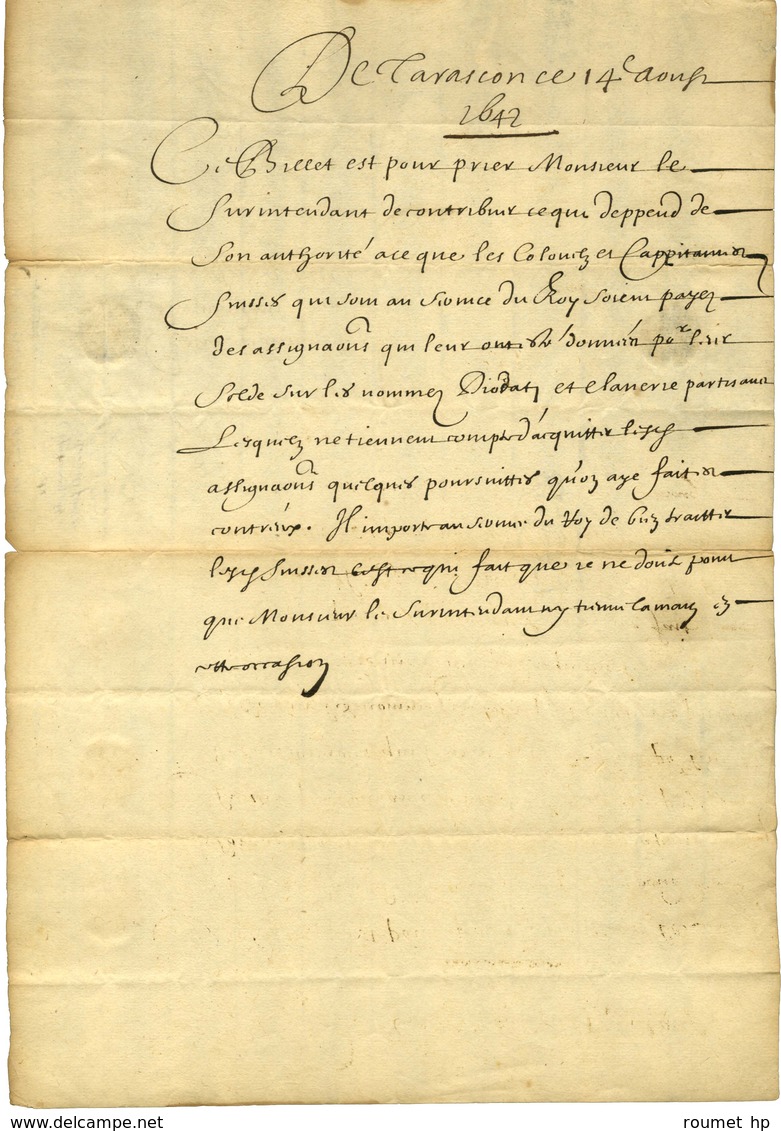 De Tarascon ce 14e Aoust
1642
Ce Billet est pour prier Monsieur le
Surintendant de contribuer ce qui deppend de
son authorité a ce que les Colonelz et Cappitaines
Suisses qui sont au service du Roy soient payez
des assignaons qui leur ont esté données por leur
solde sur les nommez Diodati et partisans
Lesquelz ne tiennent compte d'acquitter lesd
assignaons quelques poursuittes qu'on aye faites
contreux. Il importe au service du Roy de bien traitter
lesd Suisses c'est ce qui fait que ie ne doute point
que Monsieur le Surintendant n'y tienne la main en
cette occasion
roumet hp